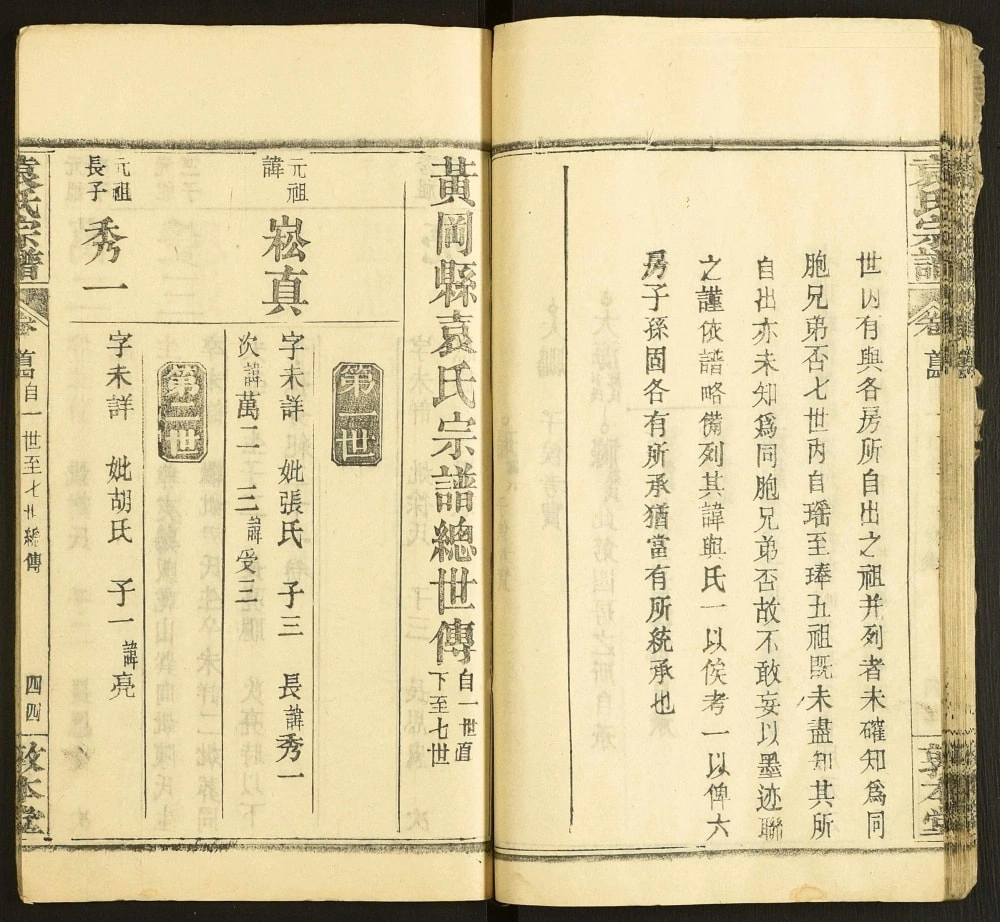 袁氏宗譜
卷
萬
世內有與各房所自出之祖并列者未確知爲同
胞兄弟否七世內自瑶至琫五祖既未盡知其所
自出亦未知爲同胞兄弟否故不敢妄以墨迹聯
之謹依譜略備列其諱與氏一以俟考一以俾六
房子孫固各有所承猶當有所統承也
黃岡縣袁氏宗譜總世傳
自一世直
下至七世
第一世
元祖
諱
崧真
字未詳 妣張氏 子三 長諱秀一
次諱萬二 三諱受三
第二世
元祖
長子
秀一
字未詳 妣胡氏 子一諱亮
袁氏宗譜
卷
萬
自一世至七世總傳
四四
敦本堂